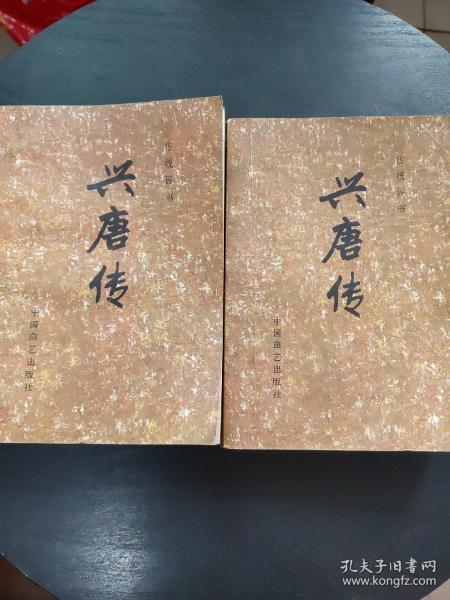 传统评书
兴唐传
中国曲艺出版社
传统评书
兴唐传
中国曲艺出版社
孔夫子旧书网
www.kongfz.com